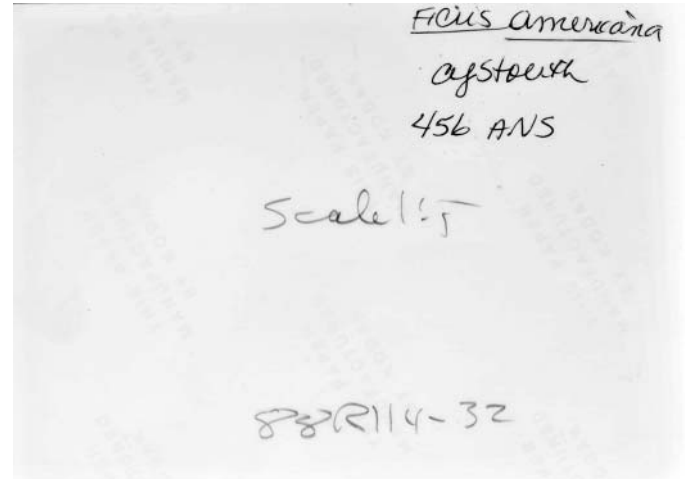 Ficus americana
cystolith
456 ANS
Scale 1:5
88R114-32